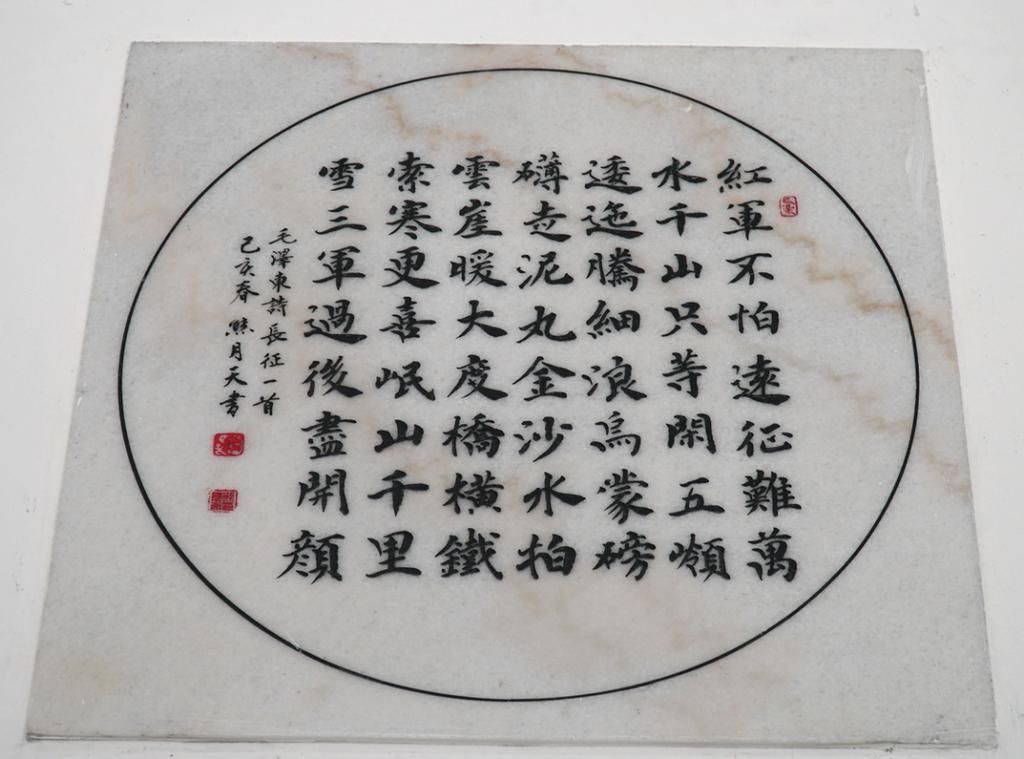 紅軍不怕遠征難萬
水千山只等閑五嶺
逶迤騰細浪烏蒙磅
礴走泥丸金沙水拍
雲崖暖大度橋橫鐵
索寒更喜岷山千里
雪三軍過後盡開顏
毛澤東詩長征一首
己亥春 熊月天書